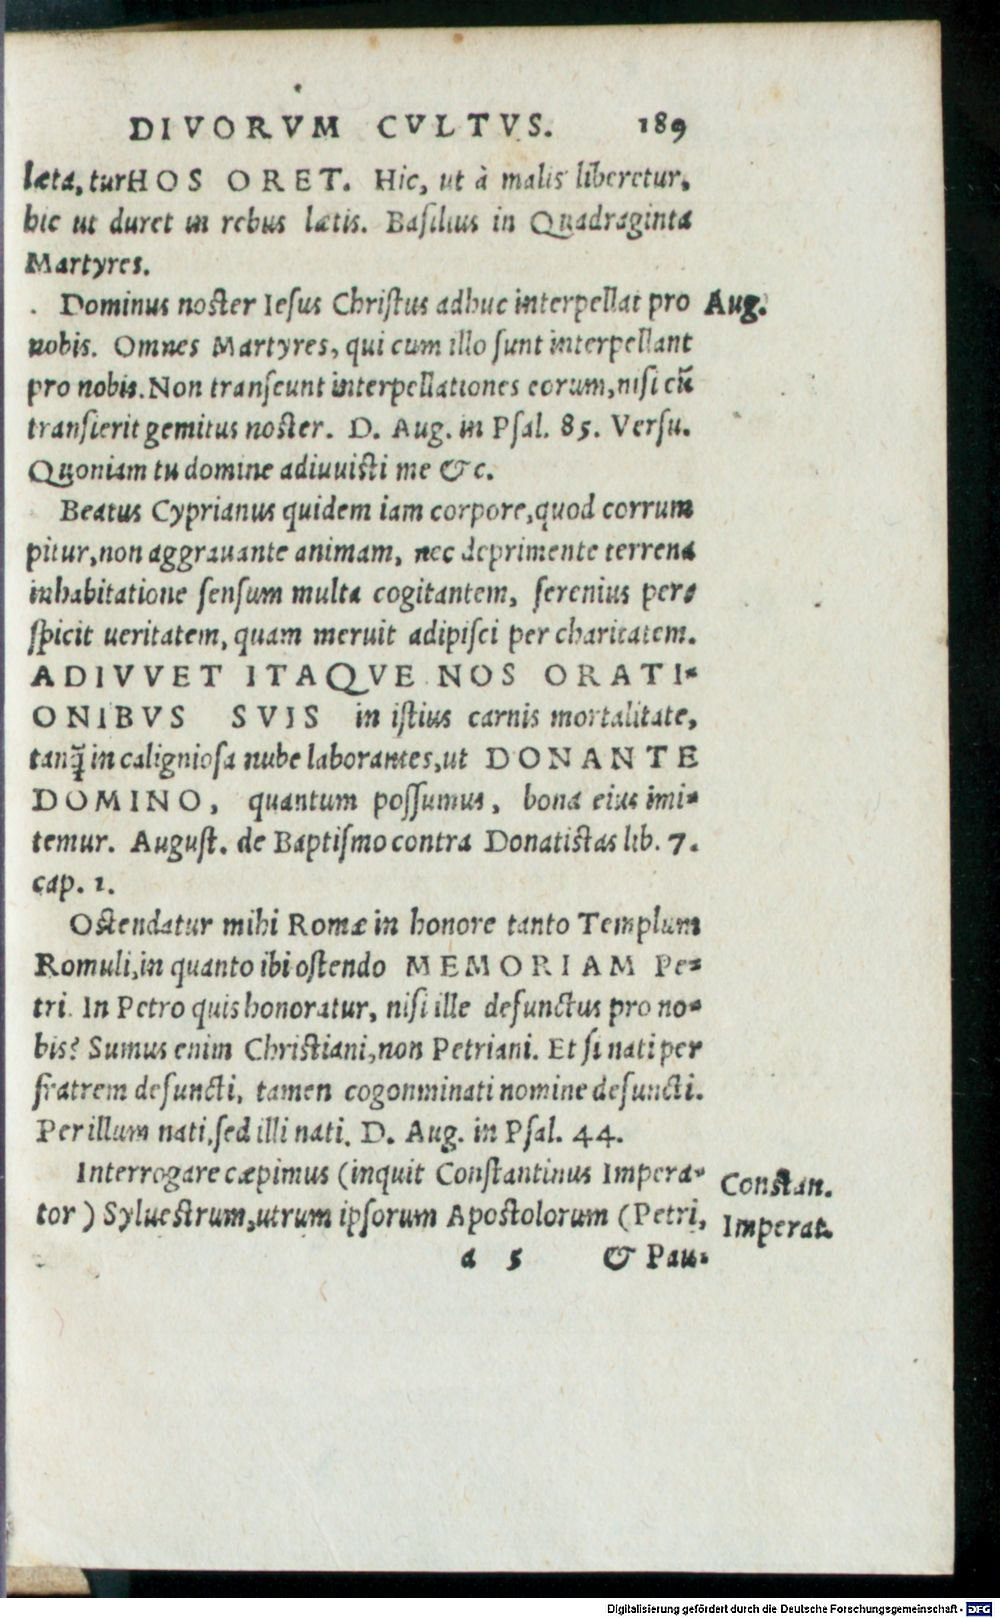 DIVORVM CVLTVS. 189
læta, turHOS ORET. Hic, ut à malis liberetur,
hic ut duret in rebus lætis. Basilius in Quadraginta
Martyres.
. Dominus noster Iesus Christus adhuc interpellat pro Aug.
nobis. Omnes Martyres, qui cum illo sunt interpellant
pro nobis. Non transeunt interpellationes eorum, nisi cũ
transierit gemitus noster. D. Aug. in Psal. 85. Versu.
Quoniam tu domine adiuuisti me &c.
Beatus Cyprianus quidem iam corpore, quod corrum
pitur, non aggrauante animam, nec deprimente terrena
inhabitatione sensum multa cogitantem, serenius per-
spicit ueritatem, quam meruit adipisci per charitatem.
ADIVVET ITAQVE NOS ORATI-
ONIBVS SVIS in istius carnis mortalitate,
tanq̃ in caligniosa nube laborantes, ut DONANTE
DOMINO, quantum possumus, bona eius imi-
temur. August. de Baptismo contra Donatistas lib. 7.
cap. 1.
Ostendatur mihi Romæ in honore tanto Templum
Romuli, in quanto ibi ostendo MEMORIAM Pe-
tri. In Petro quis honoratur, nisi ille defunctus pro no-
bis? Sumus enim Christiani, non Petriani. Et si nati per
fratrem defuncti, tamen cogonminati nomine defuncti.
Per illum nati, sed illi nati. D. Aug. in Psal. 44.
Interrogare cæpimus (inquit Constantinus Impera- Constan.
tor) Syluestrum, utrum ipsorum Apostolorum (Petri, Imperat.
a 5 & Pau-
Digitalisierung gefördert durch die Deutsche Forschungsgemeinschaft - DFG